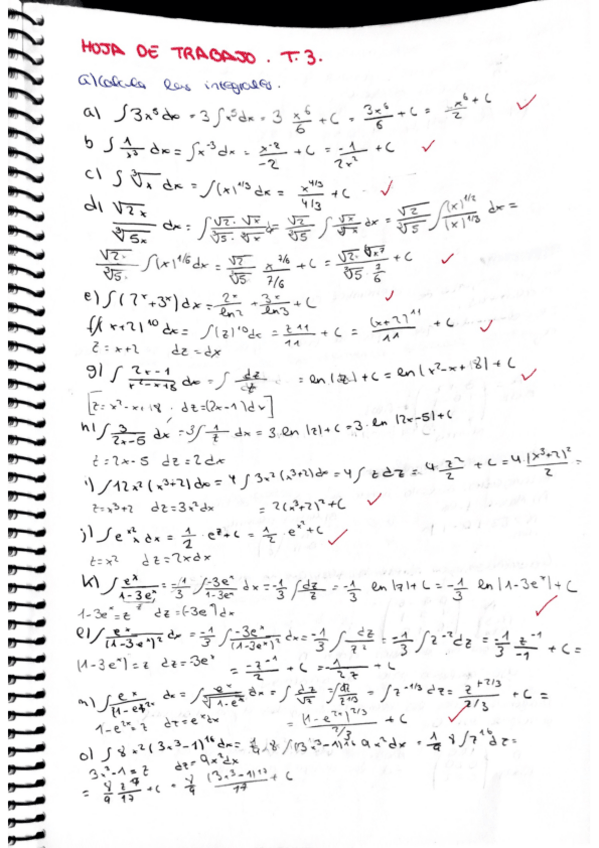 HOJA DE TRABAJO. T.3.
a) Calcula las integrales.
a) ∫3x⁵dx = 3∫x⁵dx = 3 x⁶/6 + C = 3x⁶/6 + C = x⁶/2 + C
b ∫ 1/x³ dx = ∫x⁻³dx = x⁻²/-2 + C = -1/2x² + C
c) ∫ ∛x dx = ∫(x)^1/3 dx = x^4/3 / 4/3 + C
d) √2x / ∛5x dx = ∫ √2·√x / ∛5·∛x = √2/∛5 ∫ √x/∛x dx = √2/∛5 ∫ (x)^1/2 / (x)^1/3 dx =
√2/∛5 ∫(x)^1/6 dx = √2/∛5 x^7/6 / 7/6 + C =
e) ∫(2ˣ+3ˣ)dx = 2ˣ/ln2 + 3ˣ/ln3 + C
f) (x+2)¹⁰ dx = ∫(z)¹⁰dx = z¹¹/11 + C = (x+2)¹¹/11 + C
z = x+2 dz = dx
g) ∫ 2x-1 / x²-x+18 dx = ∫ dz/z = ln|z| + C = ln|x²-x+18| + C
[z = x²-x+18 dz = (2x-1)dx]
h) ∫ 3/2x-5 dx = 3∫ 1/z dx = 3·ln|z| + C = 3·ln|2x-5| + C
t = 2x-5 dz = 2dx
i) ∫12x²(x³+2)dx = 4∫3x²(x³+2)dx = 4∫z dz = 4·z²/2 + C = 4·(x³+2)²/2 =
z = x³+2 dz = 3x²dx = 2(x³+2)² + C
j) ∫e^x² x dx = 1/2 · e^z + C = 1/2 · e^x² + C
t = x² dz = 2xdx
k) ∫ eˣ/1-3eˣ = -1/3 ∫ -3eˣ/1-3eˣ dx = -1/3 ∫ dz/z = -1/3 ln|z| + C = -1/3 ln|1-3eˣ| + C
1-3eˣ = z dz = (-3eˣ)dx
l) ∫ eˣ/(1-3eˣ)² dx = -1/3 ∫ -3eˣ/(1-3eˣ)² dx = -1/3 ∫ dz/z² = -1/3 ∫z⁻²dz = -1/3 z⁻¹/-1 + C =
(1-3eˣ) = z dz = 3eˣ = -z⁻¹/2 + C = -1/2z + C
= z^+2/3 / 2/3 + C =
= (1-e^2x)^2/3 / 2/3 + C
o) ∫8x²(3x³-1)¹⁶dx = 1/9 8∫(3x³-1)¹⁶ 9x²dx = 1/9 8∫z¹⁶dz =
3x³-1 = z dz = 9x²dx
+ C = 8/9 (3x³-1)¹⁷/17 + C